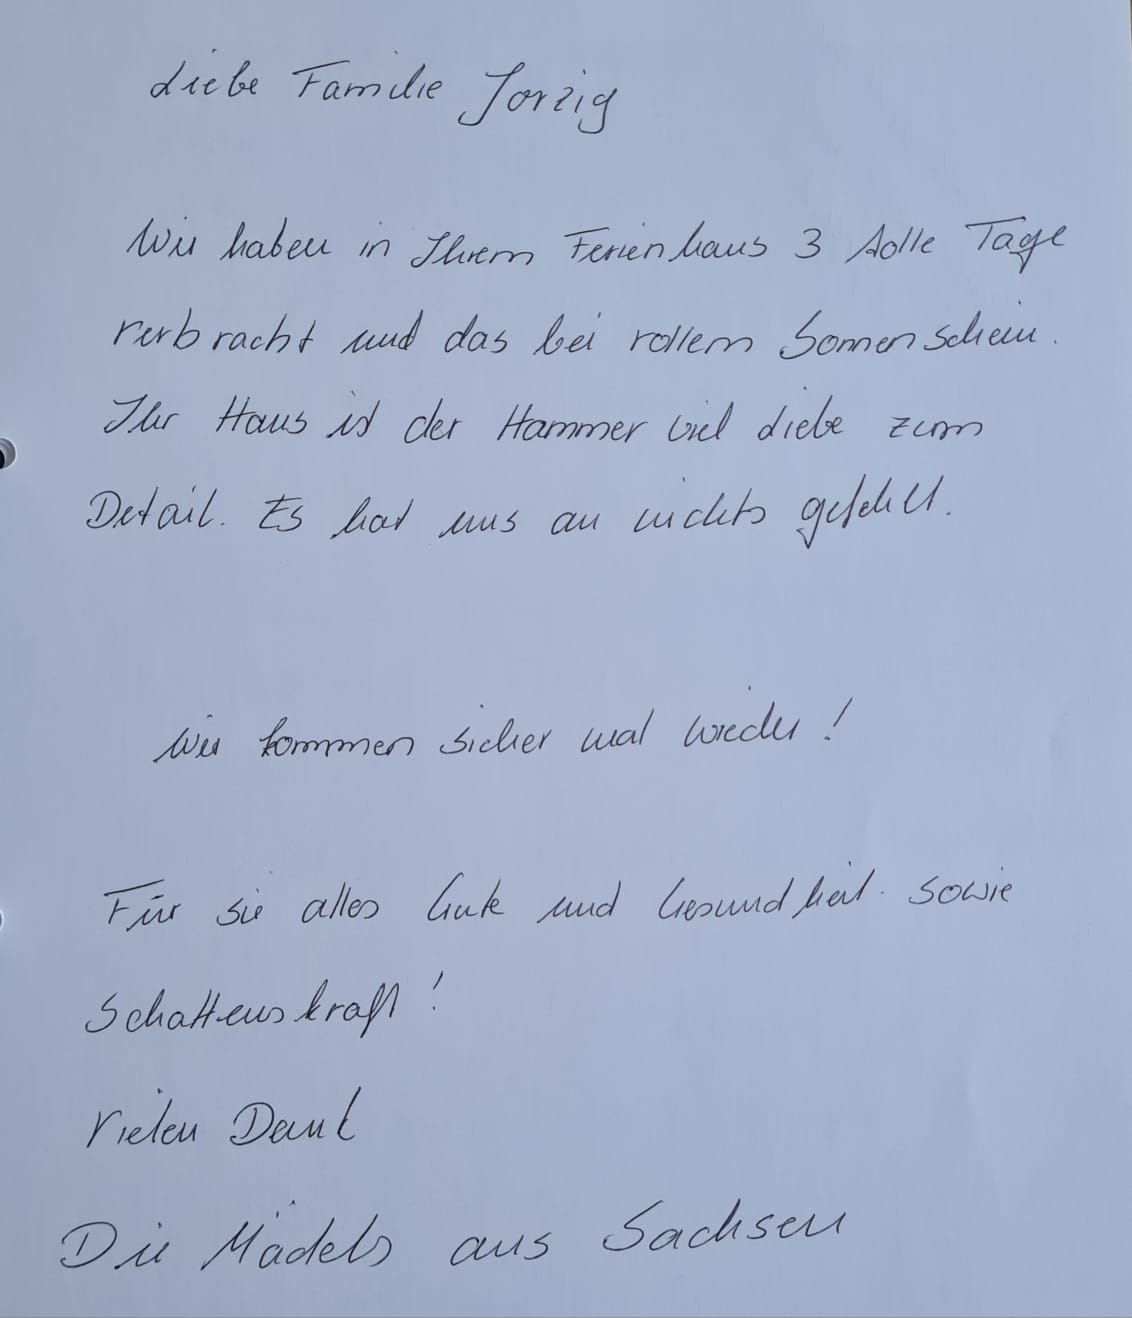 Liebe Familie Jorzig
Wir haben in Ihrem Ferienhaus 3 tolle Tage
verbracht und das bei vollem Sonnenschein.
Ihr Haus ist der Hammer viel Liebe zum
Detail. Es hat uns an nichts gefehlt.
Wir kommen sicher mal wieder!
Für sie alles Gute und Gesundheit. sowie
Schaffenskraft!
Vielen Dank
Die Mädels aus Sachsen